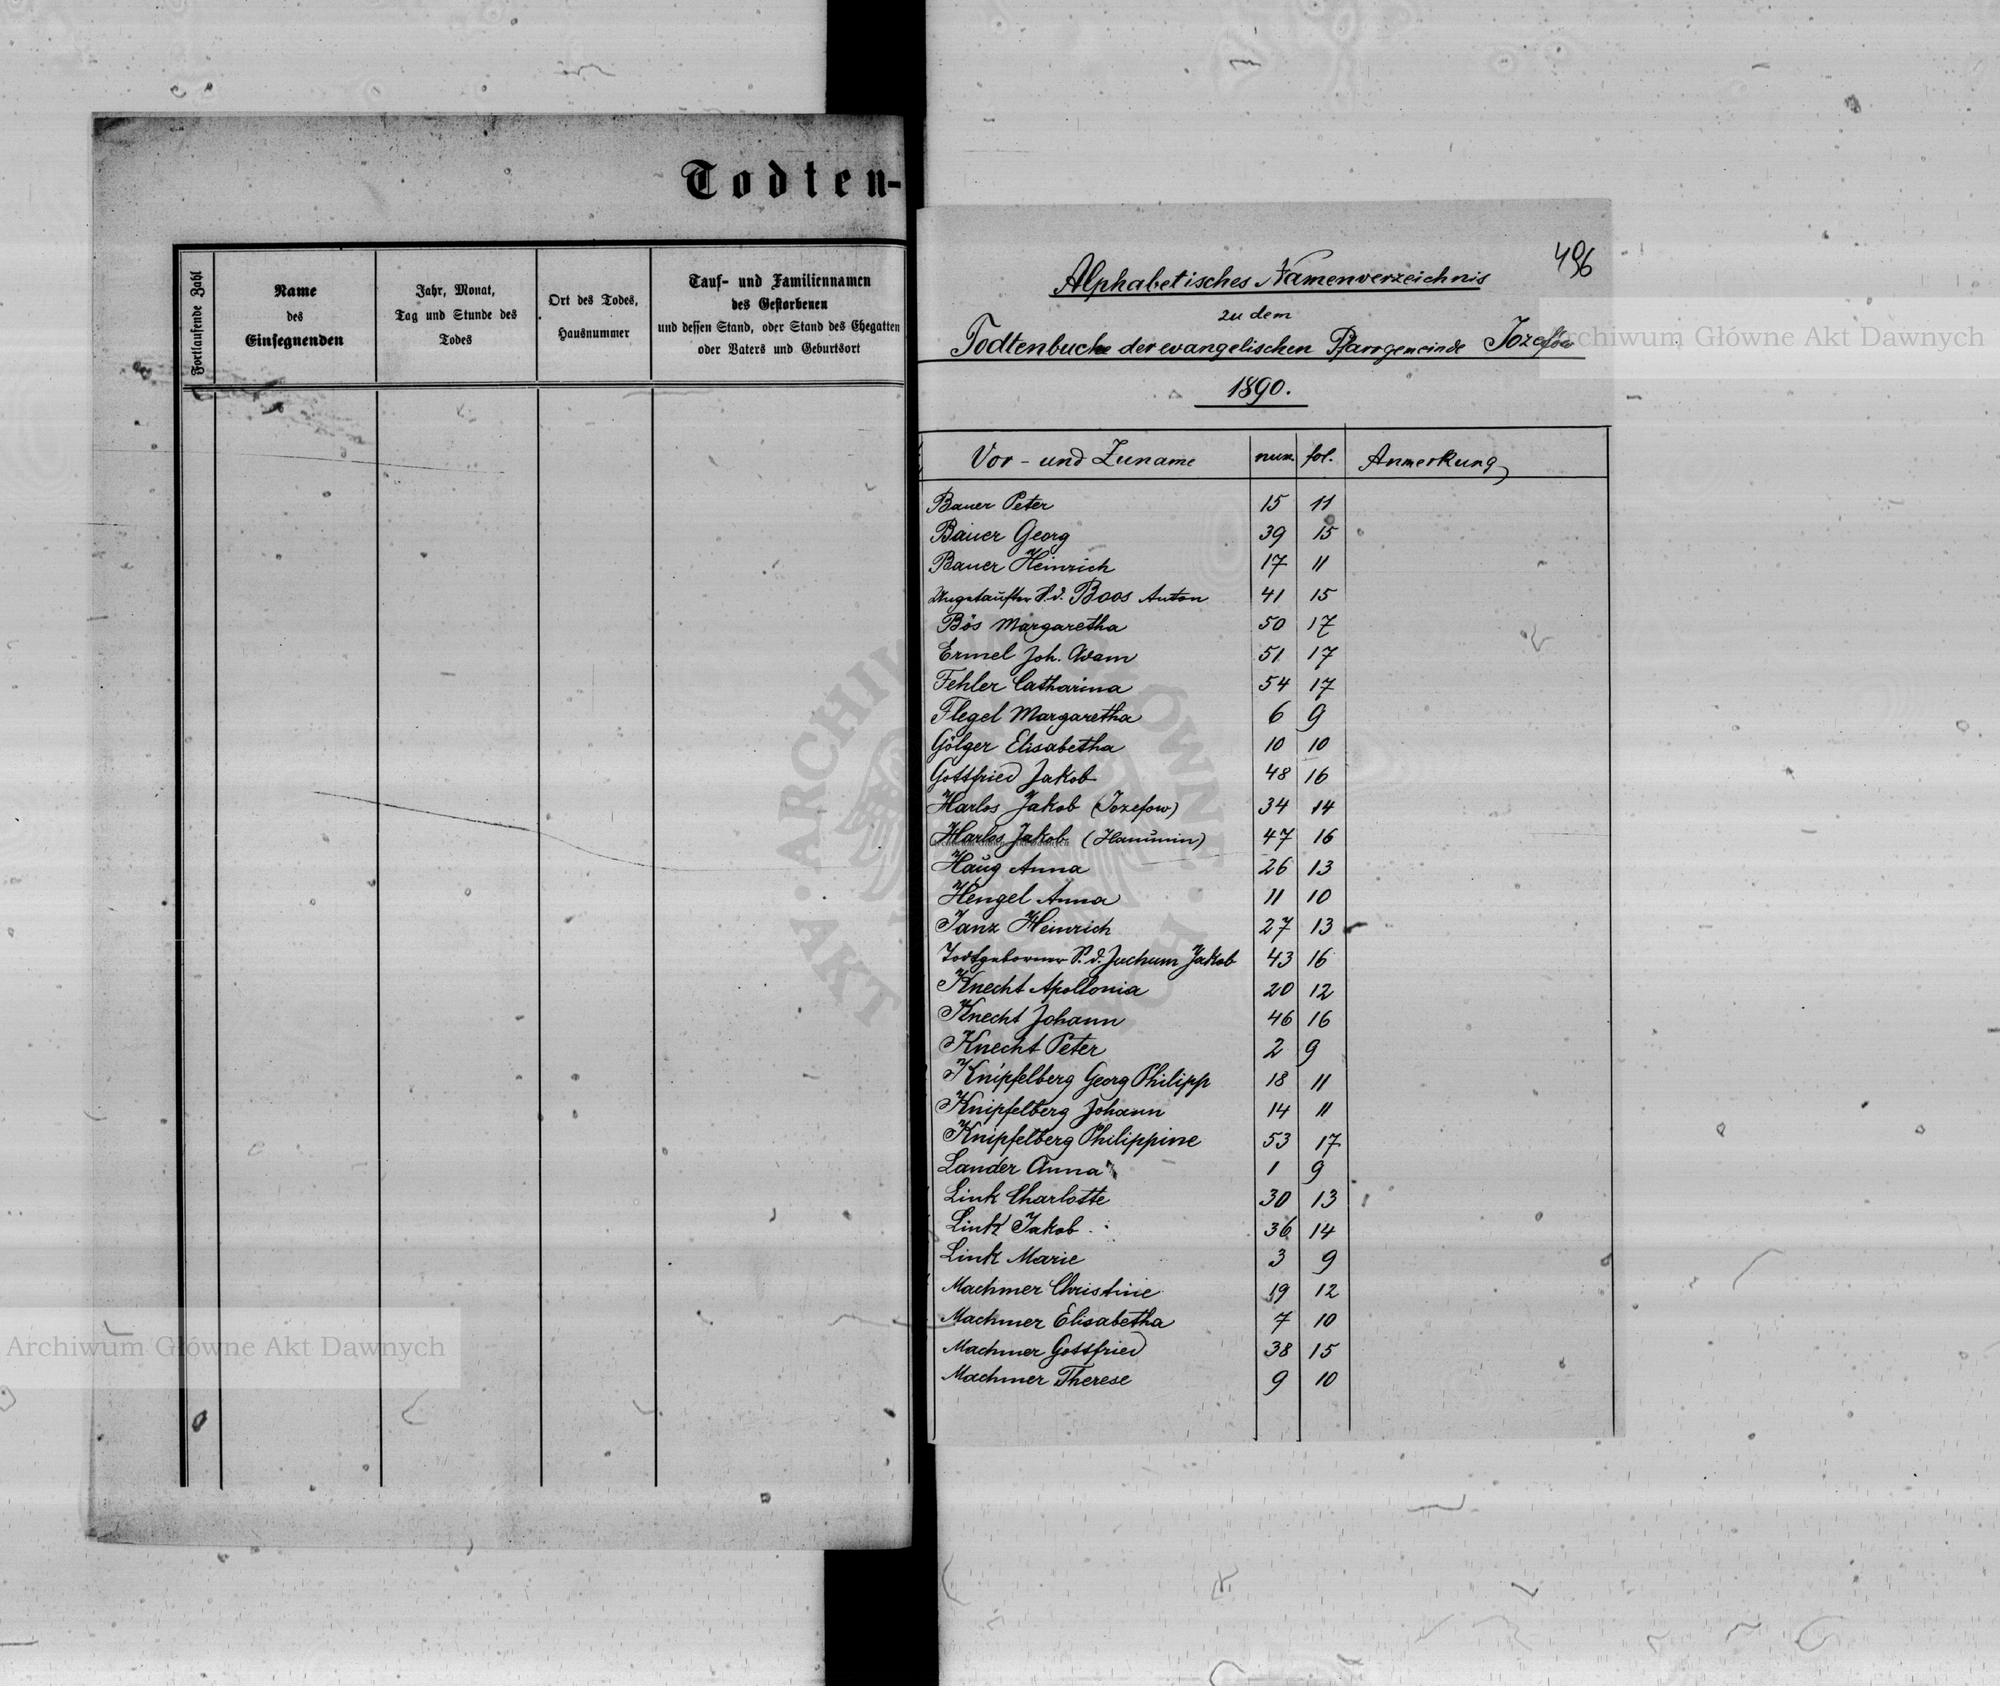 Todten-
Fortlaufende Zahl
Name
des
Einsegnenden
Jahr, Monat,
Tag und Stunde des
Todes
Ort des Todes,
Hausnummer
Tauf- und Familiennamen
des Gestorbenen
und dessen Stand, oder Stand des Ehegatten
oder Vaters und Geburtsort
496
Alphabetisches Namenverzeichnis
zu dem
Todtenbuche der evangelischen Pfarrgemeinde Jozefow
1890.
Vor- und Zuname num. fol. Anmerkung
Bauer Peter 15 11
Bauer Georg 39 15
Bauer Heinrich 17 11
Ungetaufter S. d. Boos Anton 41 15
Bös Margaretha 50 17
Ermel Joh. Adam 51 17
Fehler Catharina 54 17
Flegel Margaretha 6 9
Gölger Elisabetha 10 10
Gottfried Jakob 48 16
Harlos Jakob (Jozefow) 34 14
Harlos Jakob (Hanunin) 47 16
Haug Anna 26 13
Hengel Anna 11 10
Janz Heinrich 27 13
Todtgeborener S. d. Juchum Jakob 43 16
Knecht Apollonia 20 12
Knecht Johann 46 16
Knecht Peter 2 9
Knipfelberg Georg Philipp 18 11
Knipfelberg Johann 14 11
Knipfelberg Philippine 53 17
Lander Anna 1 9
Link Charlotte 30 13
Link Jakob 36 14
Link Marie 3 9
Machmer Christine 19 12
Machmer Elisabetha 7 10
Machmer Gottfried 38 15
Machmer Therese 9 10
Archiwum Główne Akt Dawnych
Archiwum Główne Akt Dawnych